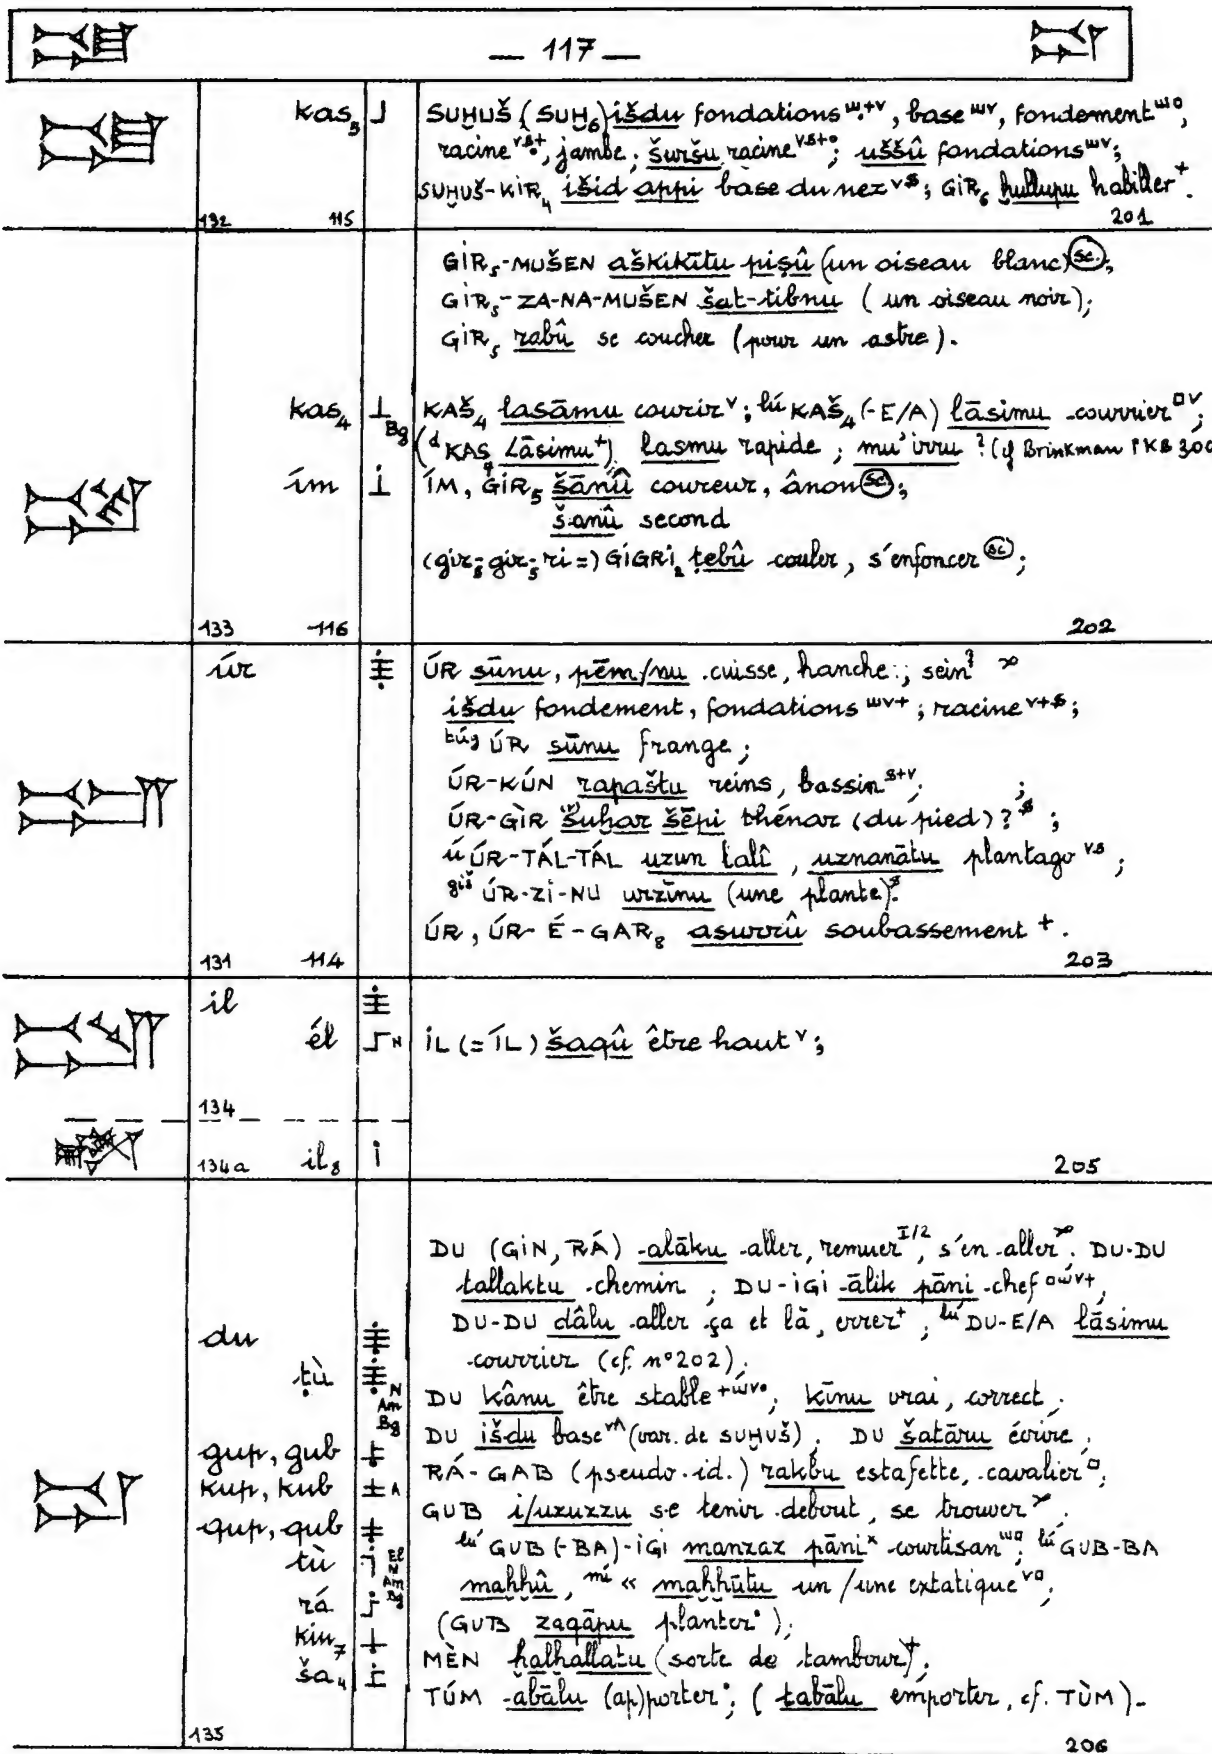 — 117 —
kas₅ SUḪUŠ (SUḪ₆) išdu fondations ᵂ·⁺ⱽ, base ᵂⱽ, fondement ᵂᴼ,
racine, jambe; šuršu racine; uššû fondations ᵂⱽ;
SUḪUŠ-KIR₄ išid appi base du nez; GIR₆ ḫullupu habiller⁺.
132 115 201
GÌR₅-MUŠEN aškikītu piṣû (un oiseau blanc) (sc.);
GÌR₅-ZA-NA-MUŠEN šat-tibnu (un oiseau noir);
GÌR₅ rabû se coucher (pour un astre).
kas₄ Bg KAŠ₄ lasāmu courir ᵛ; lú KAŠ₄(-E/A) lāsimu courrier □ᵛ;
(ᵈKAS₄ Lāsimu⁺) lasmu rapide; mu'irru ? (cf Brinkman PKB 300
ím ÍM, GÌR₅ šānû coureur, ânon (sc.);
šanû second
(gir₅-gir₅-ri =) GIGRI₂ ṭebû couler, s'enfoncer (sc);
133 116 202
úr ÚR sūnu, pēm/nu cuisse, hanche; sein?
išdu fondement, fondations ᵂⱽ⁺; racine;
túg ÚR sūnu frange;
ÚR-KÚN rapaštu reins, bassin;
ÚR-GÌR šuḫar šēpi thénar (du pied)?;
ú ÚR-TÁL-TÁL uzun lalî, uznanātu plantago;
giš ÚR-ZI-NU urzīnu (une plante).
ÚR, ÚR-É-GAR₈ asurrû soubassement ⁺.
131 114 203
il
él N IL (= ÍL) šaqû être haut ᵛ;
134
134a il₈ 205
DU (GIN, RÁ) alāku aller, remuer ᴵ/², s'en aller. DU-DU
tallaktu chemin; DU-IGI ālik pāni chef,
du DU-DU dâlu aller ça et là, errer⁺; lú DU-E/A lāsimu
courrier (cf. n°202);
ṭù N Am Bg DU kânu être stable; kīnu vrai, correct;
DU išdu base (var. de SUḪUŠ). DU šaṭāru écrire;
gup, gub RÁ-GAB (pseudo-id.) rakbu estafette, cavalier □;
kup, kub A GUB i/uzuzzu se tenir debout, se trouver;
qup, qub lú GUB(-BA)-IGI manzaz pāni courtisan; lú GUB-BA
tù El N Am Bg maḫḫû, mí « maḫḫūtu un/une extatique;
rá (GUB zaqāpu planter);
kin₇ MÈN ḫalḫallatu (sorte de tambour)⁺.
ša₄ TÚM abālu (ap)porter; (tabālu emporter, cf. TÙM).
135 206